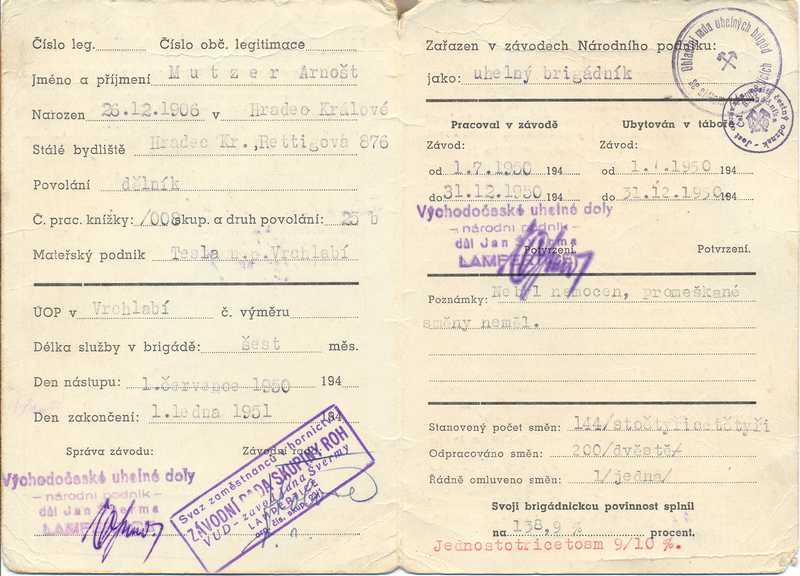 Číslo leg. Číslo obč. legitimace
Jméno a příjmení Mutzer Arnošt
Narozen 26.12.1906 v Hradec Králové
Stálé bydliště Hradec Kr., Rettigova 876
Povolání dělník
Č. prac. knížky: /008 skup. a druh povolání: 25 b
Mateřský podnik Tesla n.p. Vrchlabí
ÚOP v Vrchlabí č. výměru
Délka služby v brigádě: šest měs.
Den nástupu: 1.července 1950 194
Den zakončení: 1.ledna 1951 194
Správa závodu: Závodní rada:
Východočeské uhelné doly
– národní podnik –
důl Jan Šverma
Svaz zaměstnanců v hornictví
ZÁVODNÍ RADA SKUPINY ROH
VUD - závod Jana Švermy
Zařazen v závodech Národního podniku:
jako: uhelný brigádník
Pracoval v závodě Ubytován v táboře
Závod: Závod:
od 1.7.1950 194 od 1.7.1950 194
do 31.12.1950 194 do 31.12.1950. 194
Východočeské uhelné doly
– národní podnik –
důl Jan Šverma
Potvrzení. Potvrzení.
Poznámky: Nebyl nemocen, promeškané
směny neměl.
Stanovený počet směn: 144/stočtyřicetčtyři
Odpracováno směn: 200/dvěstě/
Řádně omluveno směn: 1/jedna/
Svoji brigádnickou povinnost splnil
na 138,9 % procent.
Jednostotřicetosm 9/10 %.